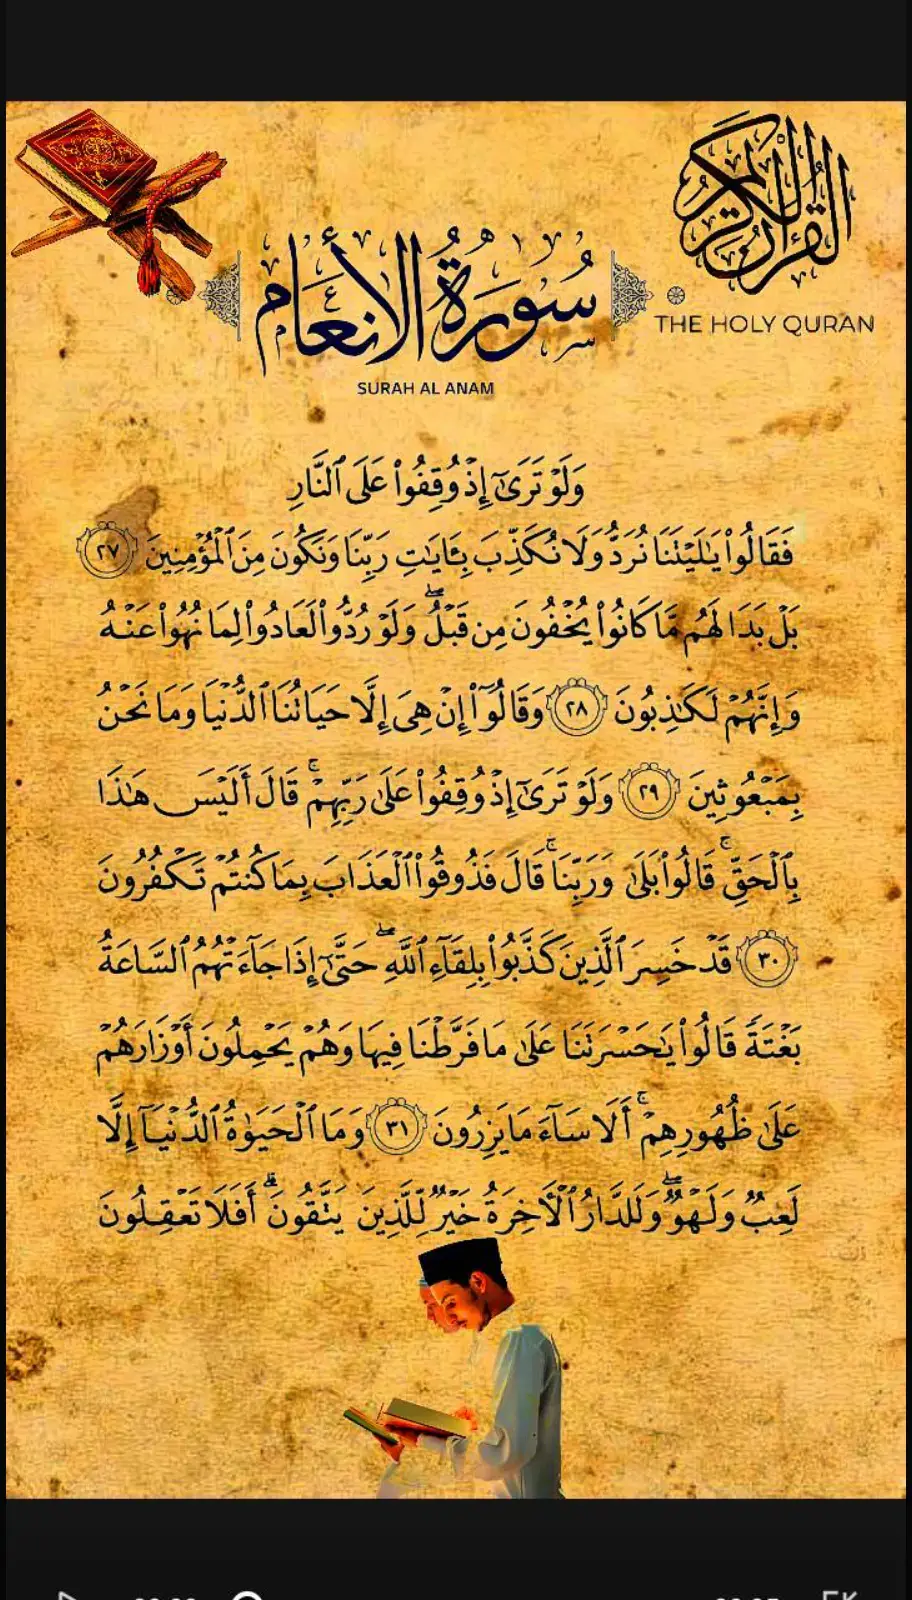 القرآن الكريم
THE HOLY QURAN
سُورَةُ الأَنعَام
SURAH AL ANAM
وَلَوْ تَرَىٰٓ إِذْ وُقِفُوا۟ عَلَى ٱلنَّارِ
فَقَالُوا۟ يَٰلَيْتَنَا نُرَدُّ وَلَا نُكَذِّبَ بِـَٔايَٰتِ رَبِّنَا وَنَكُونَ مِنَ ٱلْمُؤْمِنِينَ ٢٧
بَلْ بَدَا لَهُم مَّا كَانُوا۟ يُخْفُونَ مِن قَبْلُ ۖ وَلَوْ رُدُّوا۟ لَعَادُوا۟ لِمَا نُهُوا۟ عَنْهُ
وَإِنَّهُمْ لَكَٰذِبُونَ ٢٨ وَقَالُوٓا۟ إِنْ هِىَ إِلَّا حَيَاتُنَا ٱلدُّنْيَا وَمَا نَحْنُ
بِمَبْعُوثِينَ ٢٩ وَلَوْ تَرَىٰٓ إِذْ وُقِفُوا۟ عَلَىٰ رَبِّهِمْ ۚ قَالَ أَلَيْسَ هَٰذَا
بِٱلْحَقِّ ۚ قَالُوا۟ بَلَىٰ وَرَبِّنَا ۚ قَالَ فَذُوقُوا۟ ٱلْعَذَابَ بِمَا كُنتُمْ تَكْفُرُونَ
٣٠ قَدْ خَسِرَ ٱلَّذِينَ كَذَّبُوا۟ بِلِقَآءِ ٱللَّهِ ۖ حَتَّىٰٓ إِذَا جَآءَتْهُمُ ٱلسَّاعَةُ
بَغْتَةً قَالُوا۟ يَٰحَسْرَتَنَا عَلَىٰ مَا فَرَّطْنَا فِيهَا وَهُمْ يَحْمِلُونَ أَوْزَارَهُمْ
عَلَىٰ ظُهُورِهِمْ ۚ أَلَا سَآءَ مَا يَزِرُونَ ٣١ وَمَا ٱلْحَيَوٰةُ ٱلدُّنْيَآ إِلَّا
لَعِبٌ وَلَهْوٌ ۖ وَلَلدَّارُ ٱلْـَٔاخِرَةُ خَيْرٌ لِّلَّذِينَ يَتَّقُونَ ۗ أَفَلَا تَعْقِلُونَ